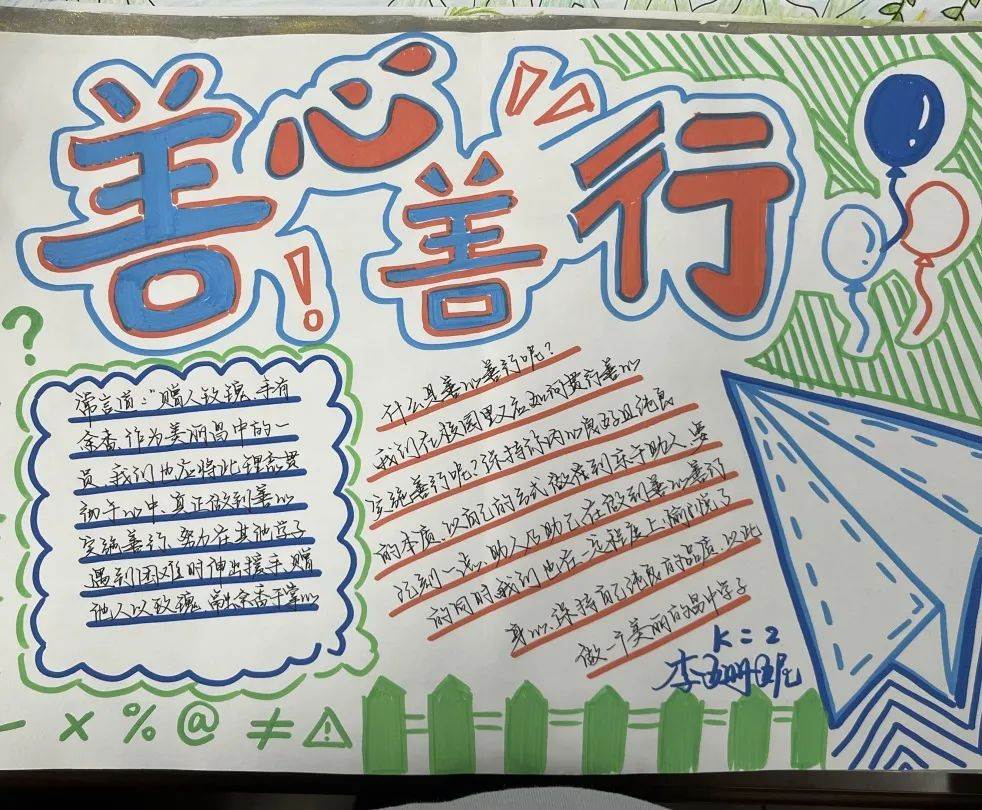 善心善行
!
?
常言道:“赠人玫瑰、手有
余香.作为美丽昌中的一
员、我们也应将此理念贯
彻于心中、真正做到善心
实施善行、努力在其他学子
遇到困难时伸出援手、赠
他人以玫瑰 余香于掌心
什么是善心善行呢?
我们在校园里又应如何贯行善心
实施善行呢?保持你内心良好且纯良
的本质、以自己的方式做到乐于助人、要
到一点、助人乃助己、在做到善心善行
的同时我们也在一定程度上愉悦了
身心、保持自己纯良的品质、以此
做一个美丽的昌中学子
K=2
李
× % @ ≠ ⚠